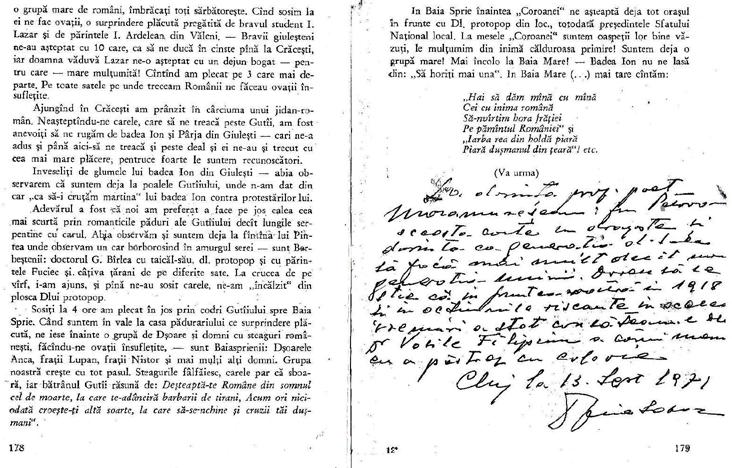 o grupă mare de români, îmbrăcați toți sărbătorește. Cînd sosim la
ei ne fac ovații, o surprindere plăcută pregătită de bravul student I.
Lazar și de părintele I. Ardelean din Văleni. — Bravii giuleșteni
ne-au așteptat cu 10 care, ca să ne ducă în cinste pînă la Crăcești,
iar doamna văduvă Lazar ne-o așteptat cu un dejun bogat — pen-
tru care — mare mulțumită! Cîntînd am plecat pe 3 care mai de-
parte. Pe toate satele pe unde treceam Românii ne făceau ovații în-
suflețite.
Ajungînd în Crăcești am prînzit în cârciuma unui jidan-ro-
mân. Neașteptîndu-ne carele, care să ne treacă peste Gutîi, am fost
anevoiți să ne rugăm de badea Ion și Pârja din Giulești — cari ne-a
adus și pînă aici-să ne treacă și peste deal și ei ne-au și trecut cu
cea mai mare plăcere, pentruce foarte le suntem recunoscători.
Inveseliți de glumele lui badea Ion din Giulești — abia ob-
servarem că suntem deja la poalele Gutîiului, unde n-am dat din
car „ca să-i cruțăm martina" lui badea Ion contra protestărilor lui.
Adevărul a fost că noi am preferat a face pe jos calea cea
mai scurtă prin romanticile păduri ale Gutîiului decît lungile ser-
pentine cu carul. Abia observăm și suntem deja la fîntîna lui Pin-
tea unde observam un car borborosind în amurgul serei — sunt Bor-
beștenii: doctorul G. Bîrlea cu taicăl-său, dl. protopop și cu părin-
tele Fuciec și câțiva țărani de pe diferite sate. La crucea de pe
vîrf, i-am ajuns, și pînă ne-au sosit carele, ne-am „încălzit" din
plosca Dlui protopop.
Sosiți la 4 ore am plecat în jos prin codri Gutîiului spre Baia
Sprie. Când suntem în vale la casa pădurarului ce surprindere plă-
cută, ne iese înainte o grupă de Dșoare și domni cu steaguri româ-
nești, făcîndu-ne ovații însuflețite, — sunt Baiasprienii: Dșoarele
Anca, frații Lupan, frații Nistor și mai mulți alți domni. Grupa
noastră crește cu tot pasul. Steagurile fâlfăiesc, carele par că sboa-
ră, iar bătrânul Gutîi răsună de: Deșteaptă-te Române din somnul
cel de moarte, la care te-adânciră barbarii de tirani, Acum ori nici-
odată croește-ți altă soarte, la care să-se-nchine și cruzii tăi duș-
mani".
178
In Baia Sprie înaintea „Coroanei" ne așteaptă deja tot orașul
în frunte cu Dl. protopop din loc., totodată președintele Sfatului
Național local. La mesele „Coroanei" suntem oaspeții lor bine vă-
zuți, le mulțumim din inimă călduroasa primire! Suntem deja o
grupă mare! Mai încolo la Baia Mare! — Badea Ion nu ne lasă
din: „Să horiți mai una". In Baia Mare (...) mai tare cîntăm:
„Hai să dăm mînă cu mînă
Cei cu inima română
Să-nvîrtim hora frăției
Pe pămîntul României" și
„Iarba rea din holdă piară
Piară dușmanul din țeară"! etc.
(Va urma)
La dorința prof. poet
în
această carte în dragoste și
dorința ca generația
să facă mai mult decît
generația unirii.
știe că în fruntea în 1918
și în riscante în acele
vremuri a stat
Dr Vasile Filipciuc
Cluj la 13. Sept 1971
12*
179